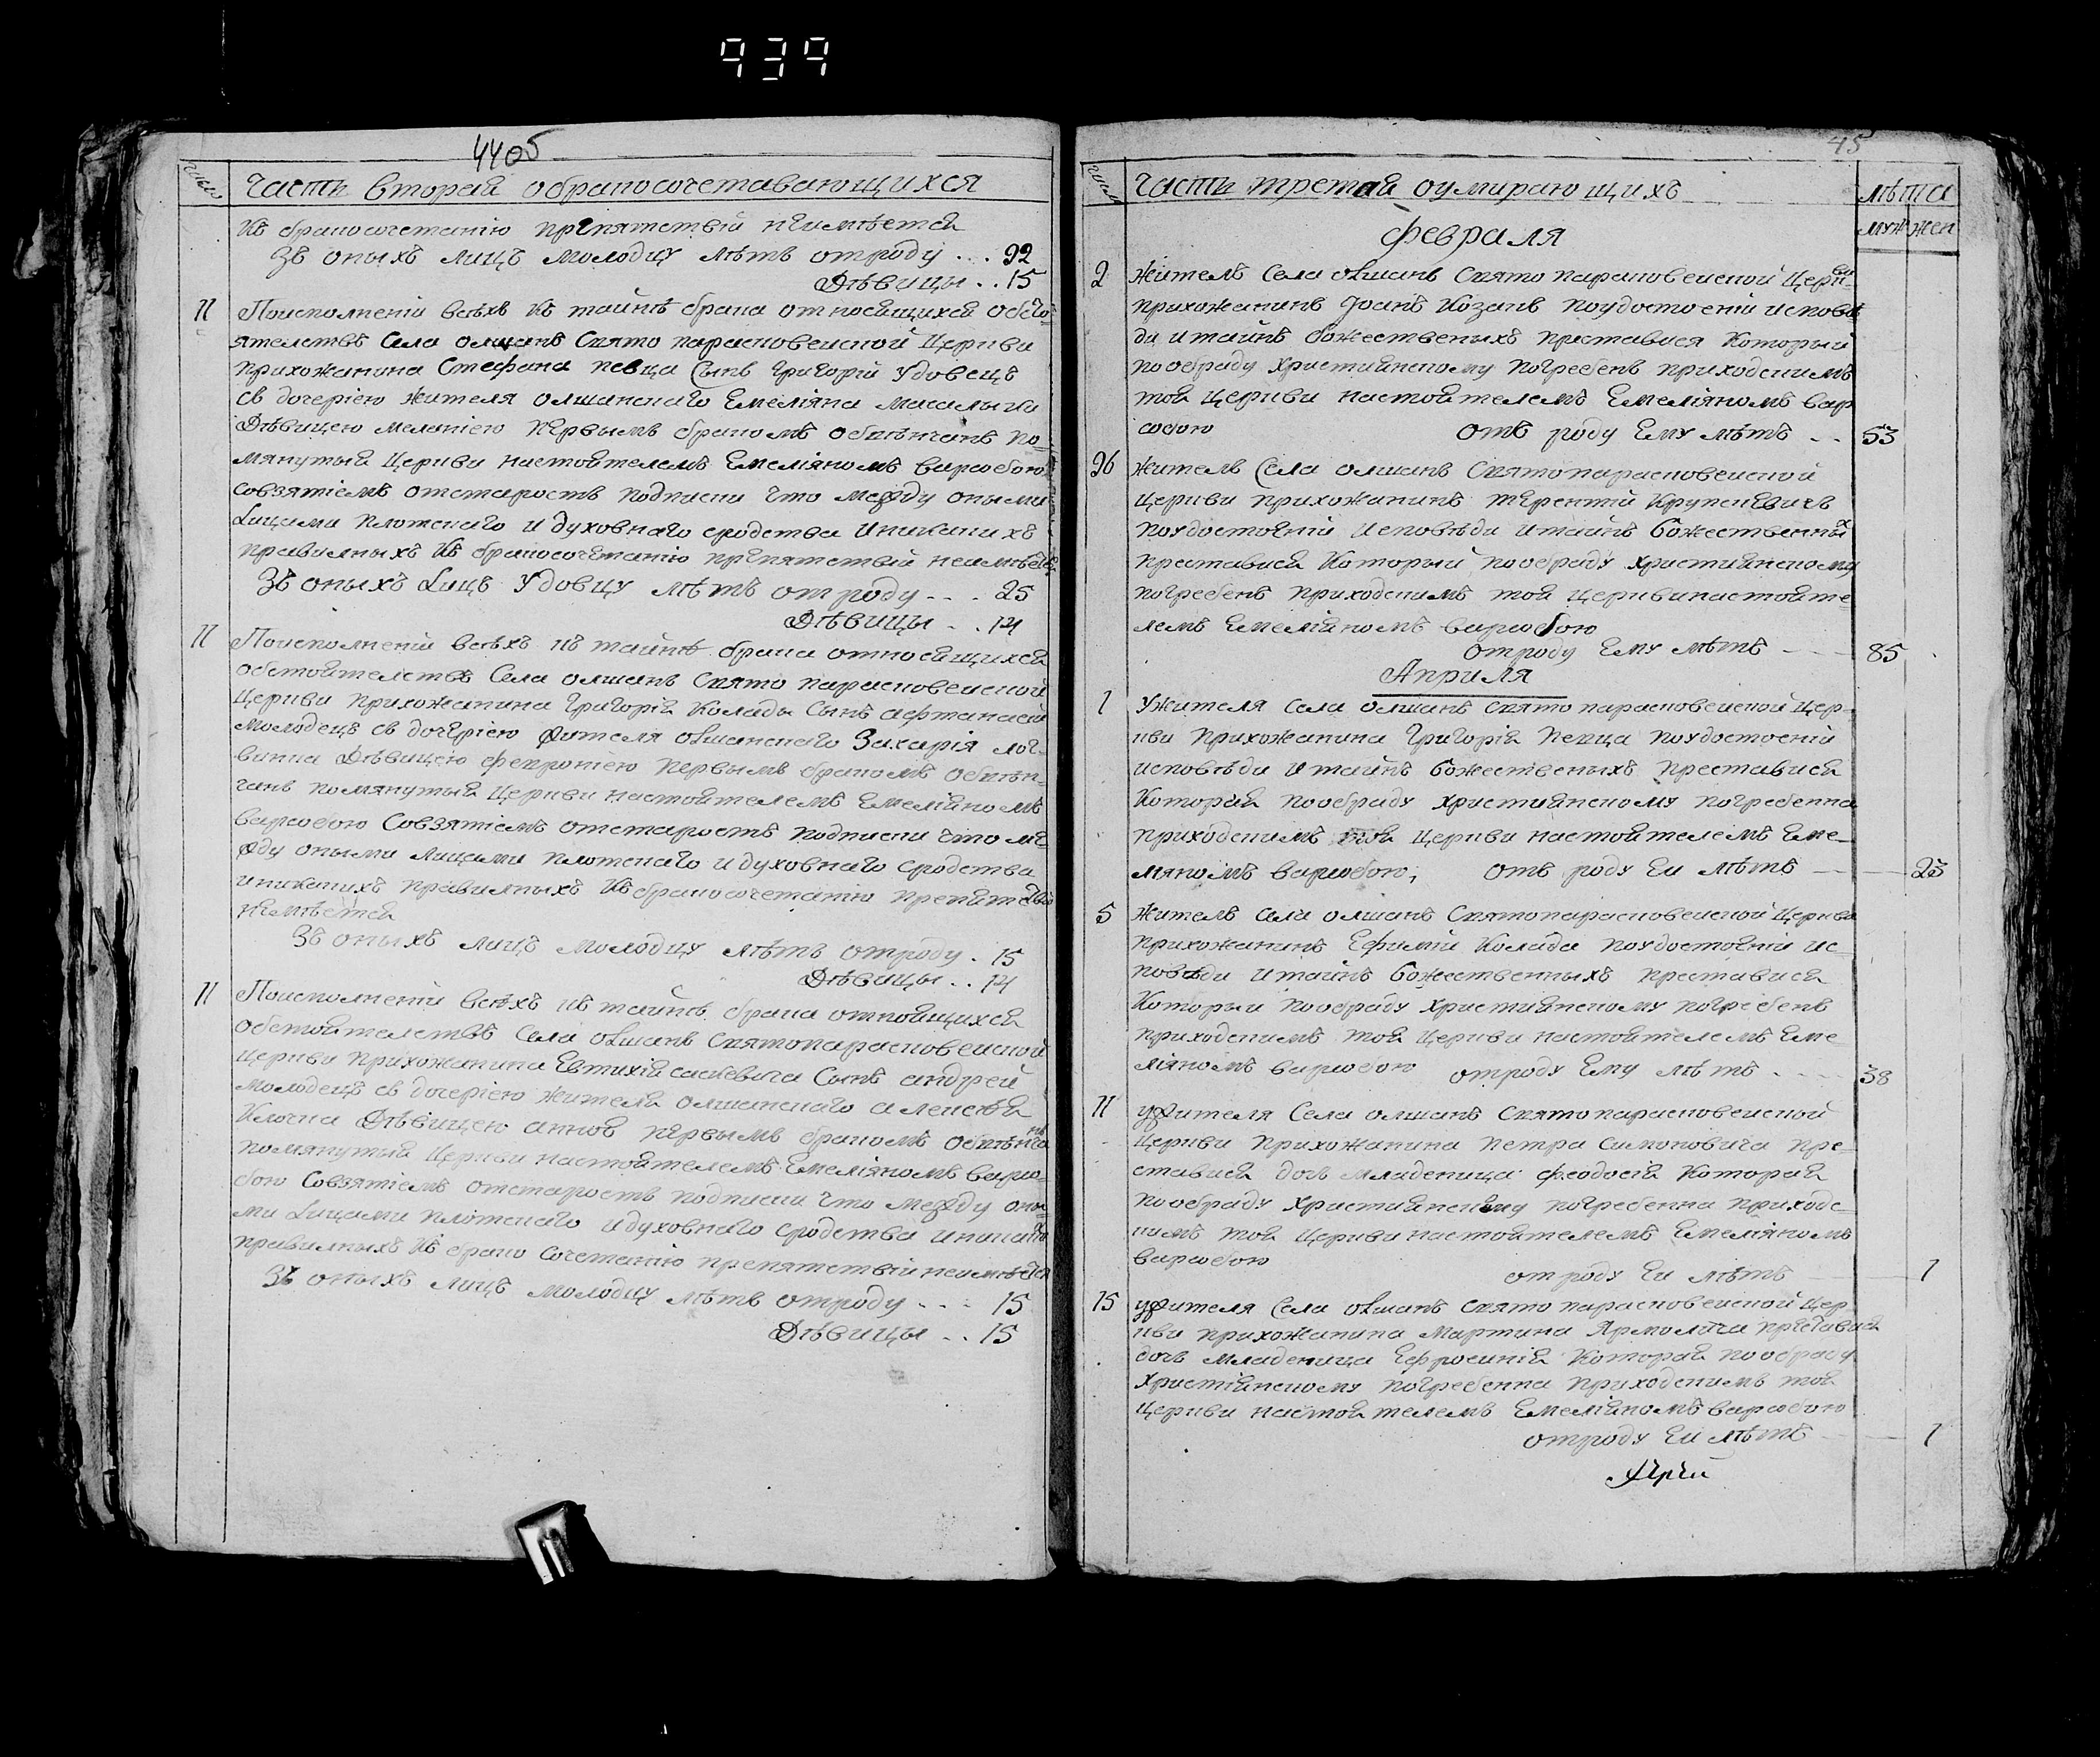 939
4405
число
часть вторая обракосочетавающихся
къ бракосочетанію препятствій неимѣется
Зъ оныхъ лицъ молодцу лѣтъ отроду ... 22
Дѣвицы .. 15
11 Поисполненіи всѣхъ къ тайнѣ брака относящихся обсто-
ятелствъ Села олшанъ Свято парасковейской Церкви
прихожанина Стефана певца Сынъ григорій Удовецъ
съ дочеріею жителя олшанскаго Емеліяна
Дѣвицею меланіею первымъ бракомъ обвѣнчанъ по-
мянутыя Церкви настоятелемъ Емеліяномъ варшобою
совзятіемъ отстаростъ подписки что между оными
лицами плотскаго и духовнаго сродства иникакихъ
правилныхъ къ бракосочетанію препятствій неимѣется
Зъ оныхъ лицъ Удовцу лѣтъ отроду ... 25
Дѣвицы .. 14
11 Поисполненіи всѣхъ къ тайнѣ брака относящихся
обстоятелствъ Села олшанъ Свято парасковейской
Церкви прихожанина григорія Коляды Сынъ афтанасій
молодецъ съ дочеріею жителя олшанскаго Захарія лог-
винна Дѣвицею февроніею первымъ бракомъ обвѣн-
чанъ помянутыя Церкви настоятелемъ Емеліяномъ
варшобою Совзятіемъ отстаростъ подписки что ме-
жду оными лицами плотскаго и духовнаго сродства
иникакихъ правилныхъ къ бракосочетанію препятствій
неимѣется
Зъ оныхъ лицъ молодцу лѣтъ отроду . 15
Дѣвицы .. 14
11 Поисполненіи всѣхъ къ тайнѣ брака относящихся
обстоятелствъ Села олшанъ Святопарасковейской
Церкви прихожанина Евтихія саскевича Сынъ андрей
молодецъ съ дочеріею жителя олшанскаго алексѣя
Клочка Дѣвицею анною первымъ бракомъ обвѣнчанъ
помянутыя Церкви настоятелемъ Емеліяномъ варшо-
бою Совзятіемъ отстаростъ подписки что между оны-
ми лицами плотскаго и духовнаго сродства иникакихъ
правилныхъ къ брако сочетанію препятствій неимѣется
Зъ оныхъ лицъ молодцу лѣтъ отроду ... 15
Дѣвицы .. 15
45
число
часть третая оумирающихъ
лѣта
муж жен
февраля
2 житель Села олшанъ Свято парасковейской Церкви
прихожанинъ Іоанъ Козакъ поудостоеніи исповѣ
ди итайнъ божественыхъ преставися который
пообряду християнскому погребенъ приходскимъ
тоя церкви настоятелемъ Емеліяномъ вар
шобою отъ роду Ему лѣтъ .. 53
26 житель Села олшанъ Святопарасковейской
Церкви прихожанинъ терентій Крупскевичъ
поудостоеніи исповѣди итайнъ божественныхъ
преставися который пообряду християнскому
погребенъ приходскимъ тоя церкви настояте-
лемъ Емеліяномъ варшобою
отроду Ему лѣтъ 85
Априля
1 Ужителя Села олшанъ Свято парасковейской Цер-
кви прихожанина григорія Певца поудостоеніи
исповѣди итайнъ божественыхъ преставися
которая пообряду християнскому погребенна
приходскимъ тоя Церкви настоятелемъ Еме-
ляномъ варшобою, отъ роду Ей лѣтъ 23
5 житель села олшанъ Святопарасковейской Церкви
прихожанинъ Ефимій Коляда поудостоеніи ис-
повѣди итайнъ божественныхъ преставися
который пообряду християнскому погребенъ
приходскимъ тоя Церкви настоятелемъ Еме-
ліяномъ варшобою отроду Ему лѣтъ 38
11 ужителя Села олшанъ Святопарасковейской
Церкви прихожанина петра симоновича пре-
ставися дочъ младеница феодосія которая
пообряду християнскому погребенна приходс-
кимъ тоя церкви настоятелемъ Емеліяномъ
варшобою
отроду Ей лѣтъ 1
15 ужителя Села олшанъ Свято парасковейской Цер
кви прихожанина мартина Ярмолича преставися
дочъ младеница Ефросинія которая пообряду
христіянскому погребенна приходскимъ тоя
церкви настоятелемъ Емеліяномъ варшобою
отроду Ей лѣтъ 1